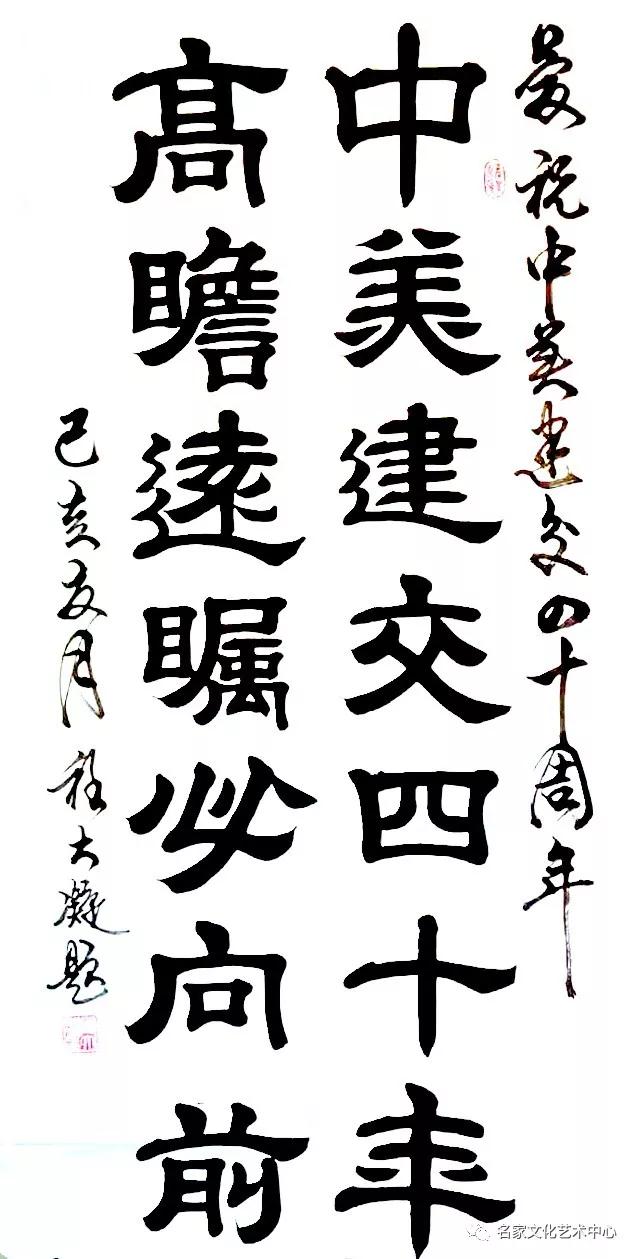 慶祝中美建交四十周年
中美建交四十年
髙瞻遠瞩必向前
己亥友月程大凝题
名家文化艺术中心